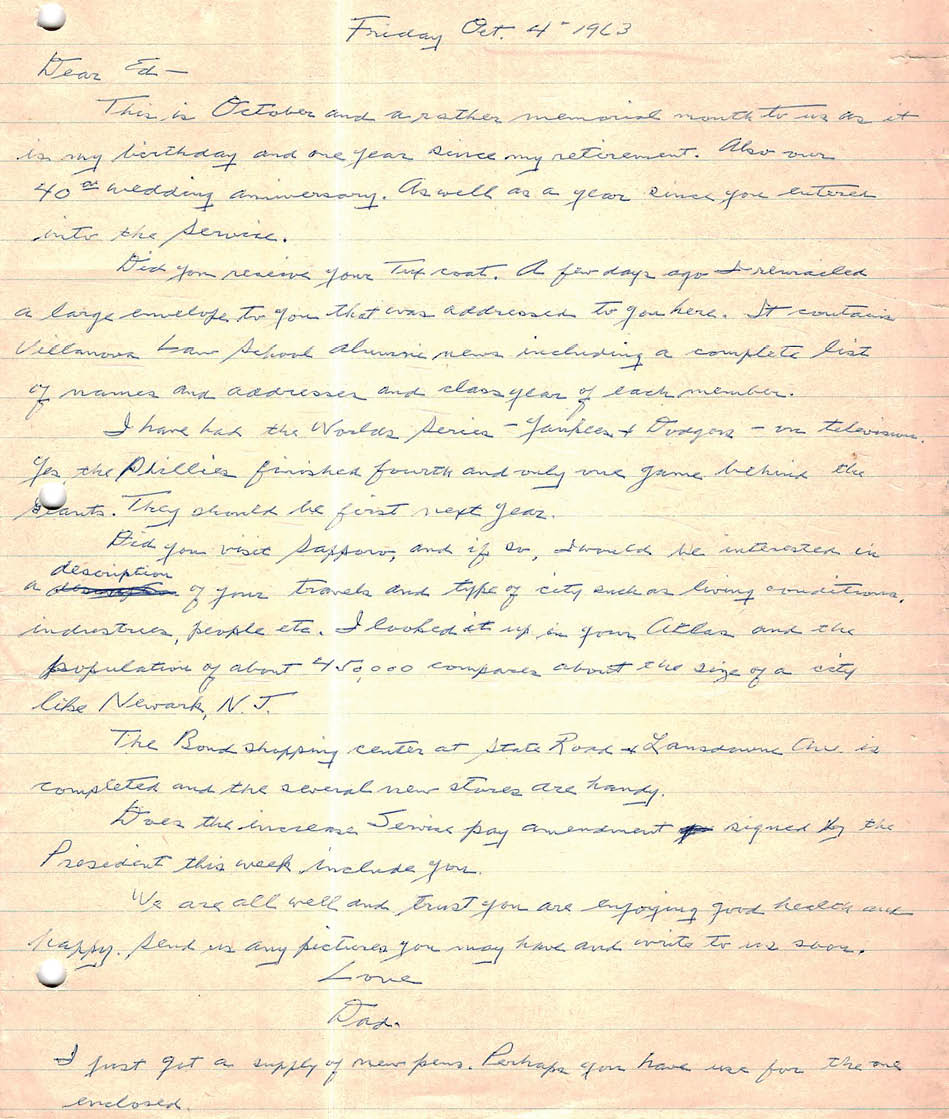 Friday Oct. 4" 1963
Dear Ed —
This is October and a rather memorial month to us as it
is my birthday and one year since my retirement. Also our
40th wedding anniversary. As well as a year since you entered
into the Service.
Did you receive your Tux coat. A few days ago I remailed
a large envelope to you that was addressed to you here. It contains
Villanova Law School alumni news including a complete list
of names and addresses and class year of each member.
I have had the Worlds Series - Yankees & Dodgers - on television.
Yes, the Phillies finished fourth and only one game behind the
Giants. They should be first next year.
Did you visit Sapporo, and if so, I would be interested in
a description of your travels and type of city such as living conditions,
industries, people etc. I looked it up in your Atlas and the
population of about 450,000 compares about the size of a city
like Newark, N.J.
The Bond shopping center at State Road & Lansdowne Ave. is
completed and the several new stores are handy.
Does the increase Service pay amendment signed by the
President this week include you.
We are all well and trust you are enjoying good health and
happy. Send us any pictures you may have and write to us soon.
Love
Dad.
I just got a supply of new pens. Perhaps you have use for the one
enclosed.